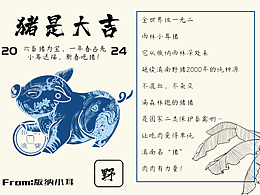 猪是大吉
20 六畜猪为宝,一年春占先 24
小耳送福,新春吃猪!
From:版纳小耳
野
全世界仅一无二
雨林小耳猪
它从版纳雨林深处来
延续滇南野猪2000年的纯种源
不混血,不杂交
满森林跑的猪猪
是国家二类保护畜禽哟…
让吃肉变得单纯
滇南名“猪”
肉肉有力量!